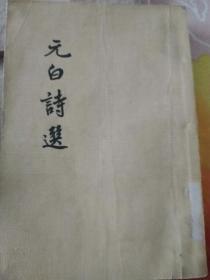 元白詩選